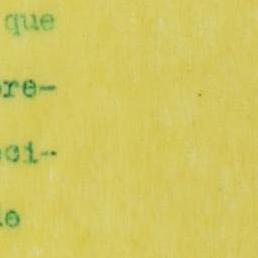 que
re-
ci-